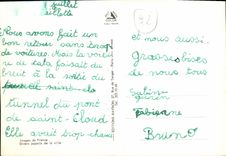 juillet
Nous avons fait un
bon retour sans trop
de voitures. Mais la voitu
re de tata faisait du
bruit à la sortie du
tunnel du pont
de saint-Cloud
Elle avait trop chaud
et nous aussi.
Grosses bises
de nous tous
Fabienne
Bruno
Images de France
Divers aspects de la ville